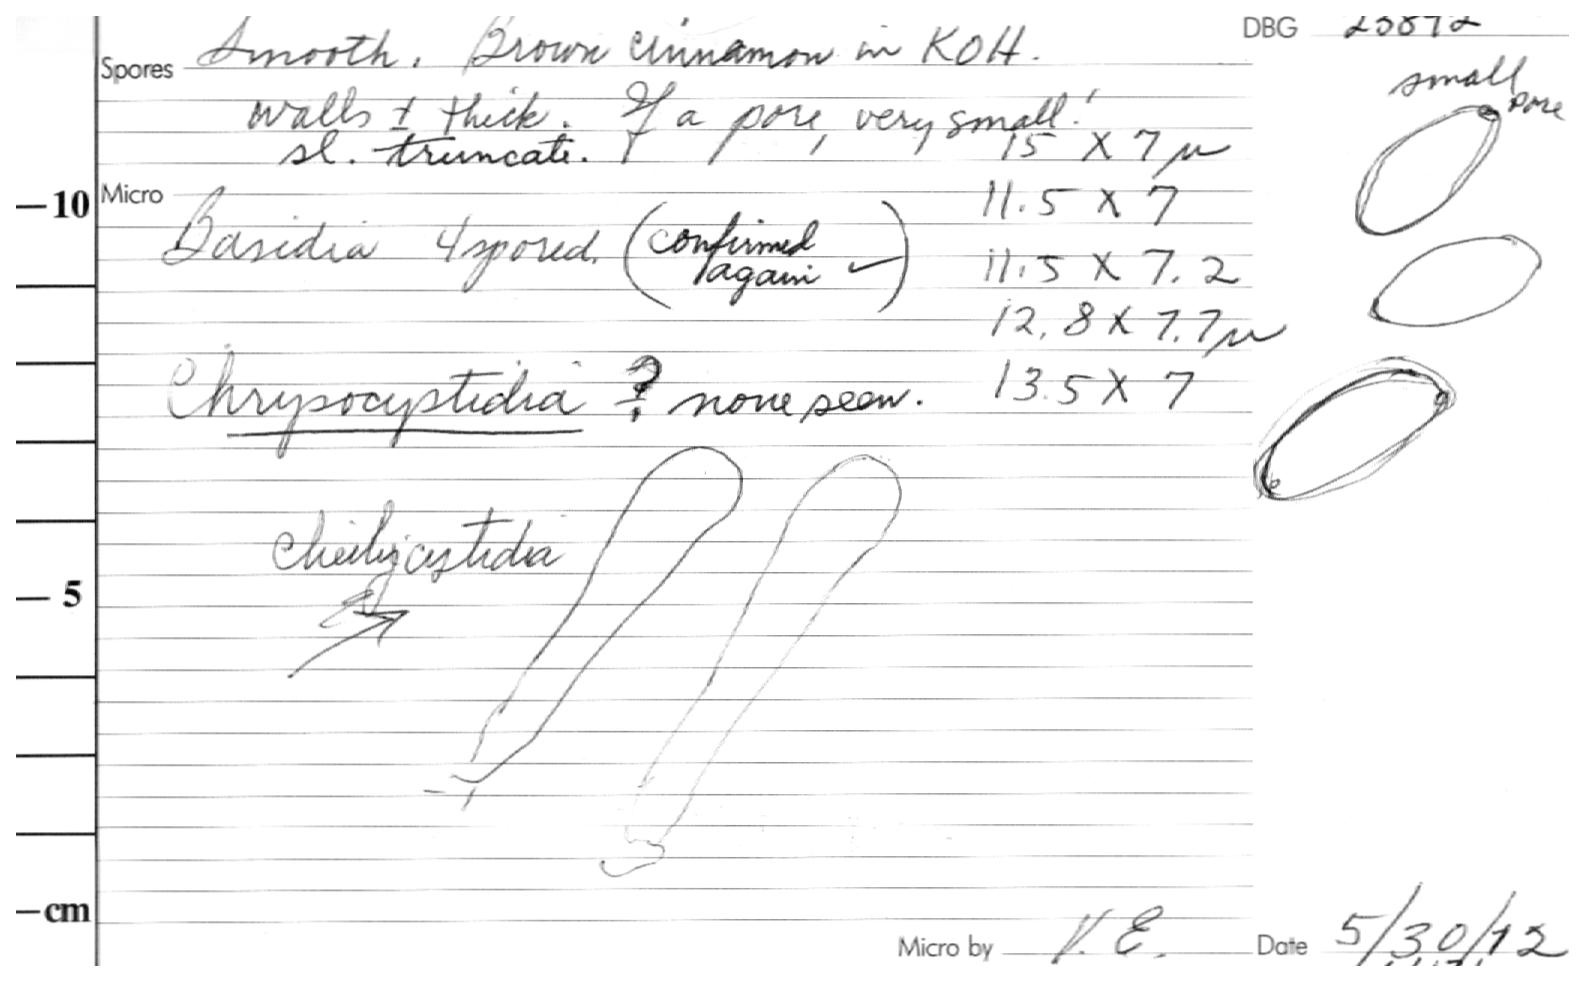 DBG
Spores Smooth. Brown cinnamon in KOH.
small pore
walls ± thick. If a pore, very small!
sl. truncate. 15 X 7 µ
Micro
11.5 X 7
Basidia 4 spored. (confirmed again ✓)
11.5 X 7.2
12.8 X 7.7 µ
Chrysocystidia ? none seen. 13.5 X 7
cheilocystidia
10
5
cm
Micro by V.E. Date 5/30/12